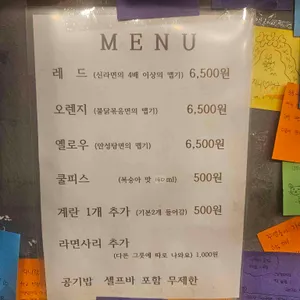 MENU
레 드 (신라면의 4배 이상의 맵기) 6,500원
오렌지 (불닭볶음면의 맵기) 6,500원
옐로우 (안성탕면의 맵기) 6,500원
쿨피스 (복숭아 맛 ml) 500원
계란 1개 추가 (기본2개 들어감) 500원
라면사리 추가
(다른 그릇에 따로 나와요) 1,000원
공기밥 셀프바 포함 무제한